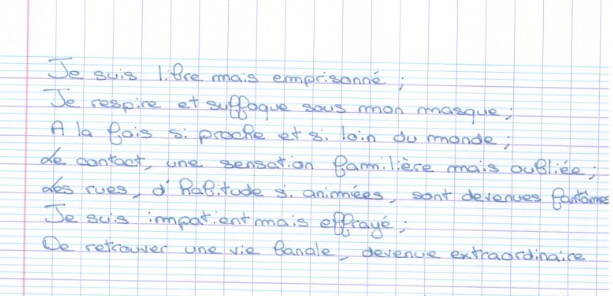 Je suis libre mais emprisonné ;
Je respire et suffoque sous mon masque ;
A la fois si proche et si loin du monde ;
Le contact, une sensation familière mais oubliée ;
Les rues, d'habitude si animées, sont devenues fantômes
Je suis impatient mais effrayé ;
De retrouver une vie banale, devenue extraordinaire